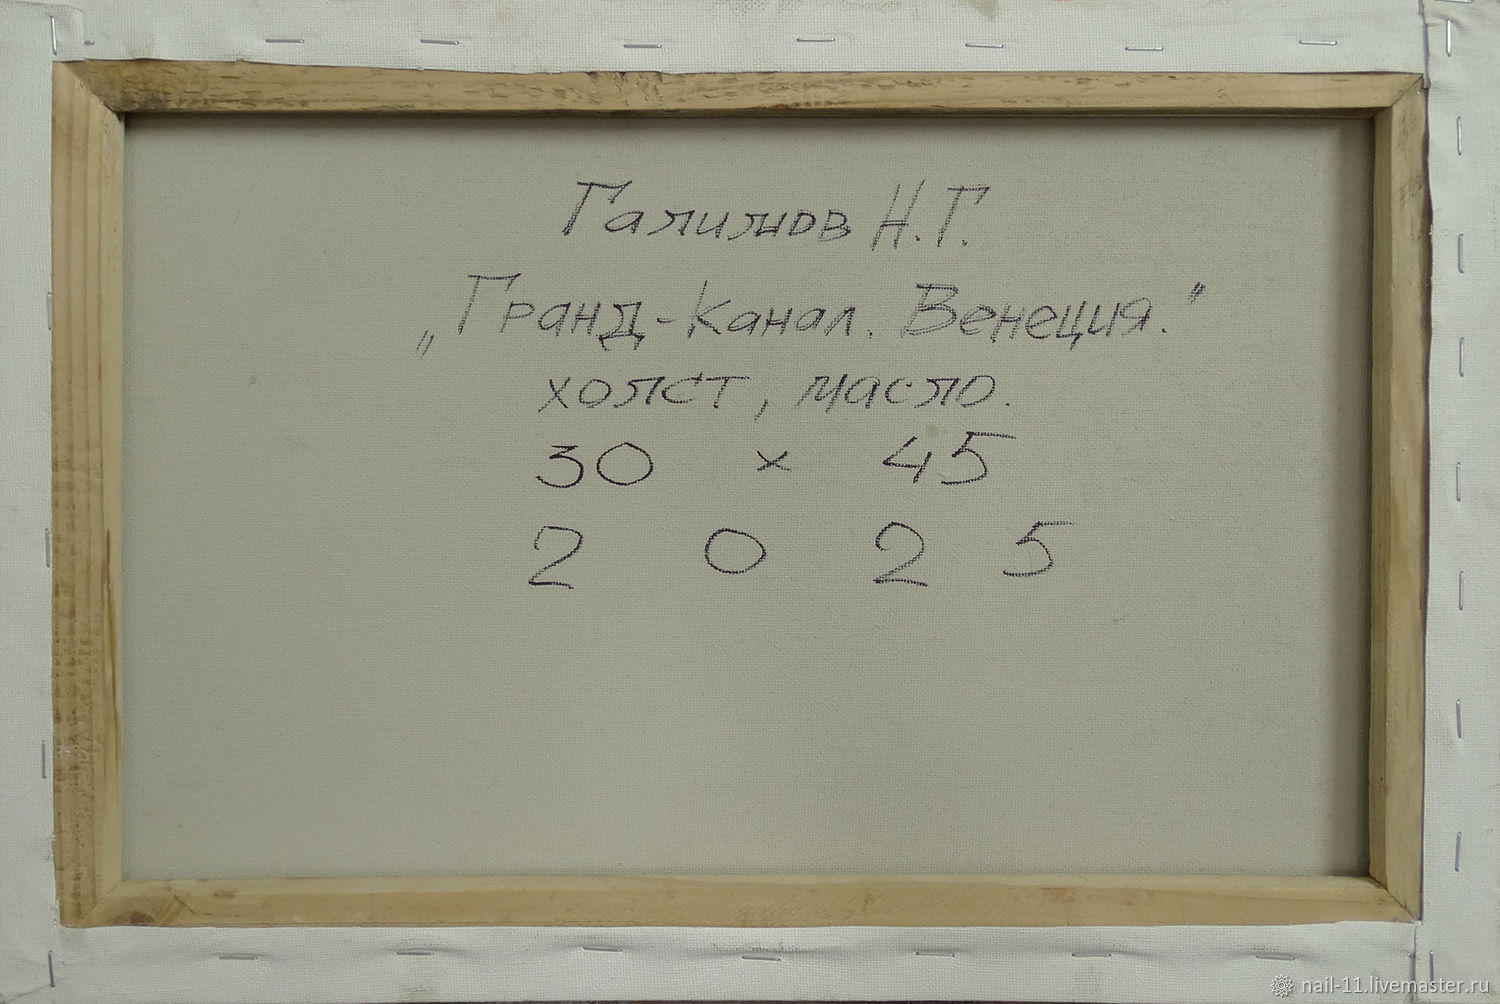 Галимов Н.Г.
„Гранд-канал. Венеция."
холст, масло.
30 × 45
2025
nail-11.livemaster.ru